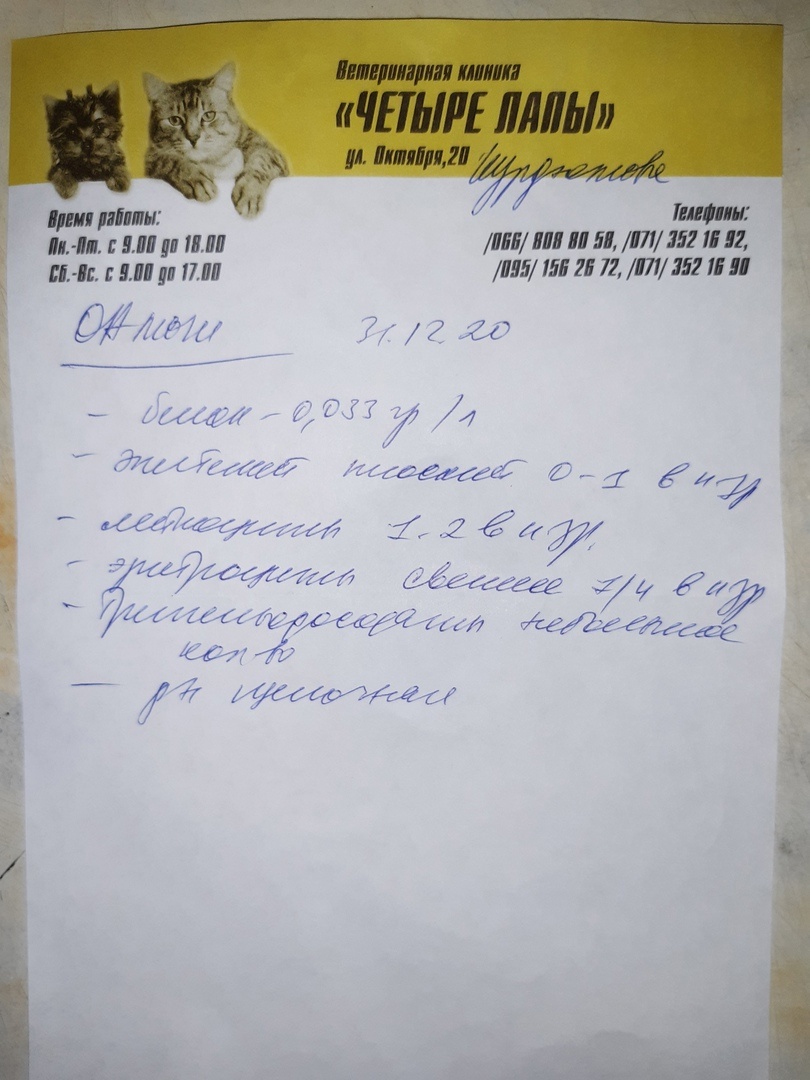 Ветеринарная клиника
«ЧЕТЫРЕ ЛАПЫ»
ул. Октября,20
Время работы:
Пн.-Пт. с 9.00 до 18.00
Сб.-Вс. с 9.00 до 17.00
Телефоны:
/066/ 808 80 58, /071/ 352 16 92,
/095/ 156 26 72, /071/ 352 16 90
ОА мочи 31.12.20
- белок - 0,033 гр/л
- эпителий плоский 0-1 в п/зр
- лейкоциты 1-2 в п/зр.
- эритроциты свежие 3/4 в п/зр
- трипельфосфаты небольшое
кол-во
- pH щелочная